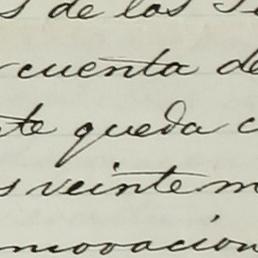 s de los
cuenta de
te queda c
s veinte m
nnovacion